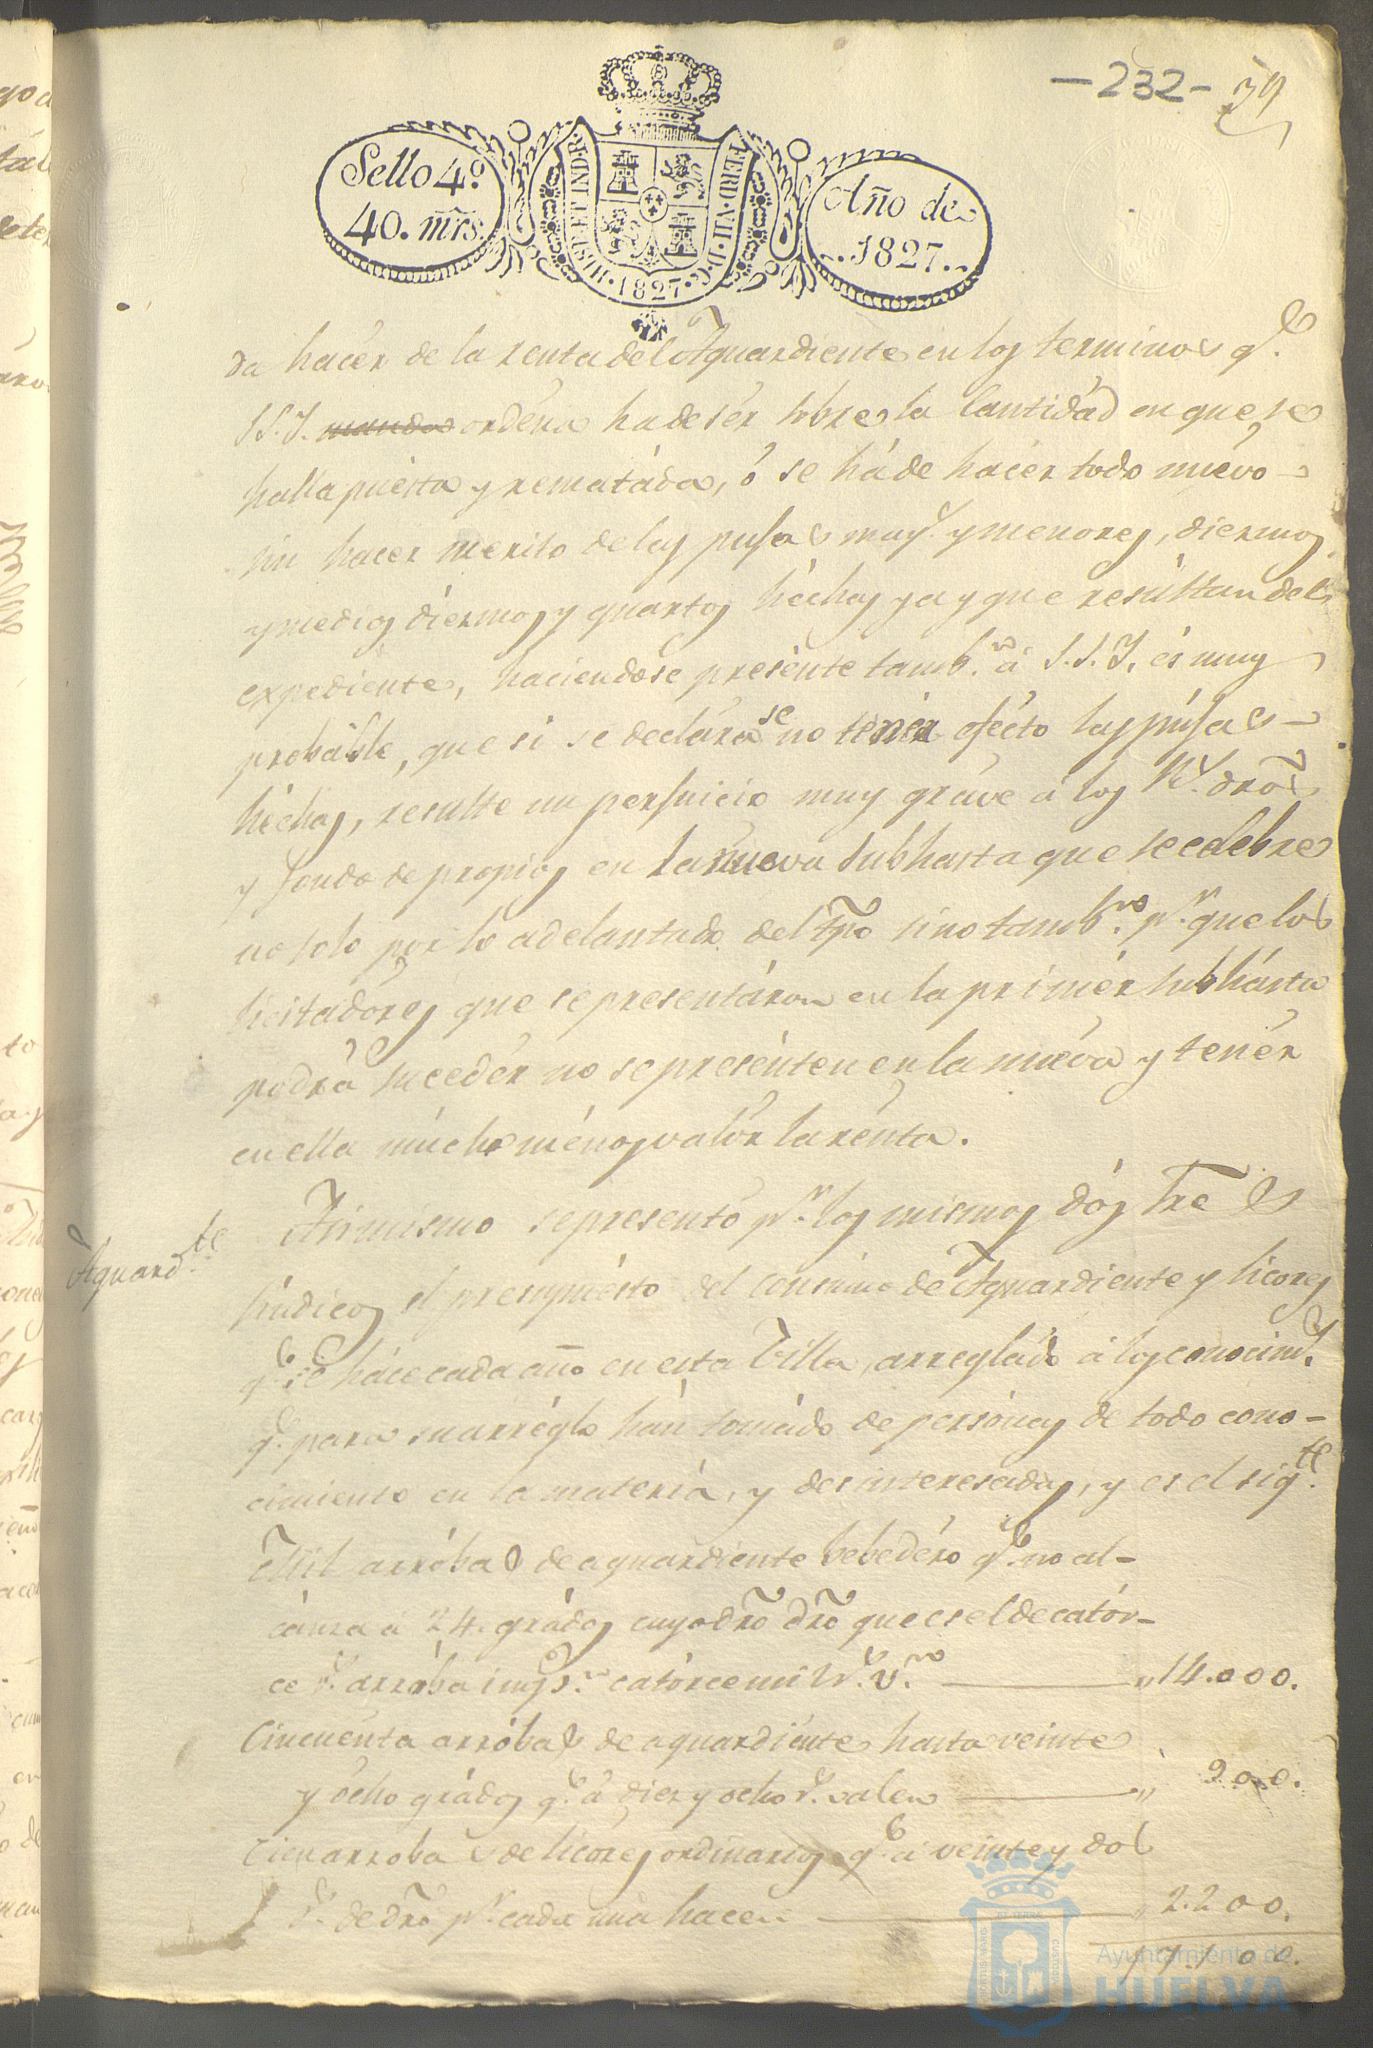 -232- 79
Sello 4º.
40. mrs.
HISP. ET IND. R.
FERD. VII. D. G.
.1827.
Año de
1827.
da hacér de la renta del Aguardiente en los terminos q.e
S.S.Y. mando ordéna ha de sér sobre la Cantidád en que se
halla puésta y rematáda, ó se há de hacér todo nuévo
sin hacer merito de las pujas may.s y menores, diezmos
y medios diezmos y quartos héchas ya y que resúltan del
expediénte, haciendose presénte tamb.n á S.S.Y. és muy
probable, que si se declárase no tenér efécto las pújas
héchas, resulte un perjuicio muy gráve á los R.s dros
y fondo de propios en la nueva Subhasta que se celebre
no solo por lo adelantado del tpo sino tamb.n p.r que los
licitadóres que se presentáron en la primér subhásta
podrá sucedér no se presénten en la nuéva y tenér
en ella múcho ménos valór la rénta.
Aguard.te
Asimismo se presentó p.r los mismos dós Sres
síndicos el presupuésto del consumo de Aguardiente y licores
q.e se háce cada año en esta Villa, arregládo á los conocim.s
q.e para su arréglo hán tomádo de persónas de todo cono-
cimiento en la matería, y desinteresadas, y es el sig.te
Mil arróbas de aguardiente bebedéro q.e no al-
cánza á 24. grádos cuyo dro dro que es el de catór-
ce r.s arróba imp.n catórce mil r.s v.n " 14.000.
Cincuénta arróbas de aguardiénte hasta veinte
y ócho grádos q.e á diez y ocho r.s valen " 900.
Cien arrobas de licores ordinarios q.e á veinte y dos
r.s de dro p.r cada una hacen " 2.200.
17.100.
Ayuntamiento de
HUELVA